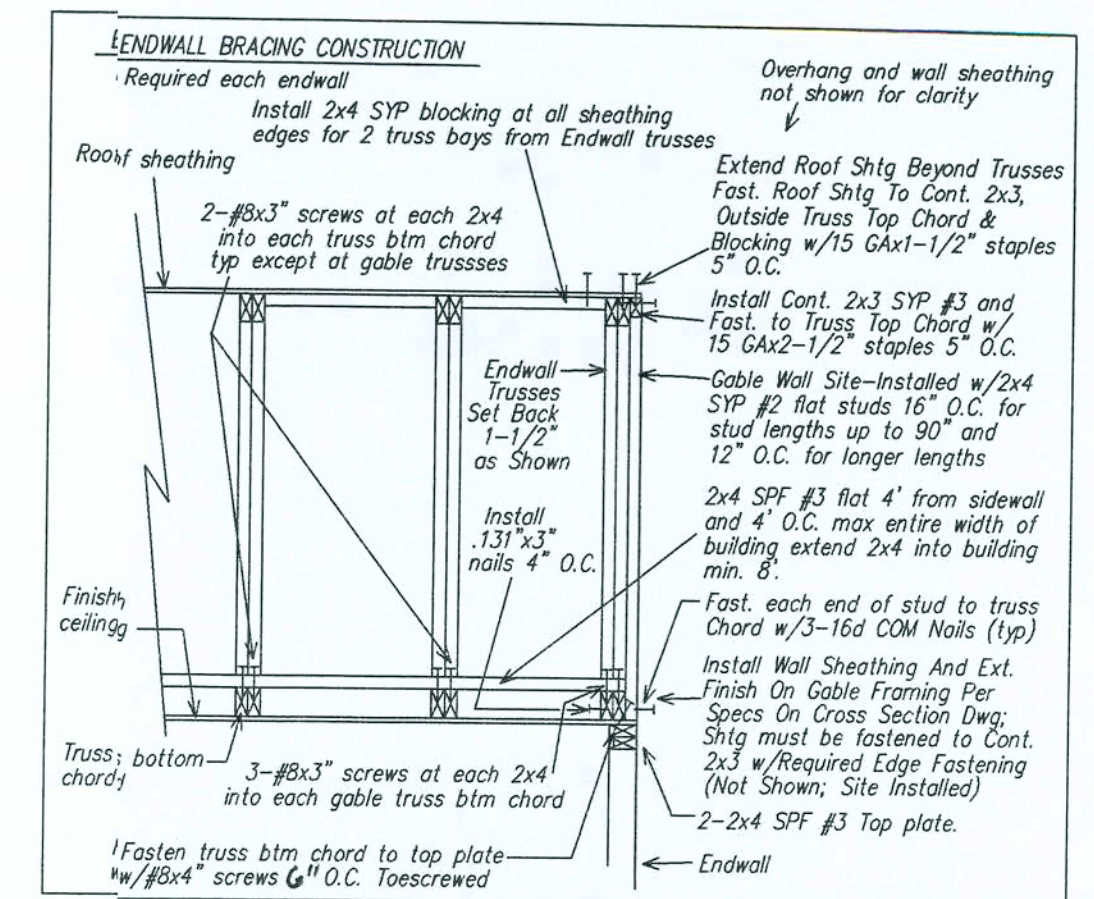 ENDWALL BRACING CONSTRUCTION
Required each endwall
Install 2x4 SYP blocking at all sheathing
edges for 2 truss bays from Endwall trusses
Overhang and wall sheathing
not shown for clarity
Roof sheathing
2-#8x3" screws at each 2x4
into each truss btm chord
typ except at gable trussses
Extend Roof Shtg Beyond Trusses
Fast. Roof Shtg To Cont. 2x3,
Outside Truss Top Chord &
Blocking w/15 GAx1-1/2" staples
5" O.C.
Install Cont. 2x3 SYP #3 and
Fast. to Truss Top Chord w/
15 GAx2-1/2" staples 5" O.C.
Endwall
Trusses
Set Back
1-1/2"
as Shown
Gable Wall Site-Installed w/2x4
SYP #2 flat studs 16" O.C. for
stud lengths up to 90" and
12" O.C. for longer lengths
Install
.131"x3"
nails 4" O.C.
2x4 SPF #3 flat 4' from sidewall
and 4' O.C. max entire width of
building extend 2x4 into building
min. 8'.
Finish
ceiling
Fast. each end of stud to truss
Chord w/3-16d COM Nails (typ)
Install Wall Sheathing And Ext.
Finish On Gable Framing Per
Specs On Cross Section Dwg;
Shtg must be fastened to Cont.
2x3 w/Required Edge Fastening
(Not Shown; Site Installed)
Truss bottom
chord
3-#8x3" screws at each 2x4
into each gable truss btm chord
2-2x4 SPF #3 Top plate.
Fasten truss btm chord to top plate
w/#8x4" screws 6" O.C. Toescrewed
Endwall